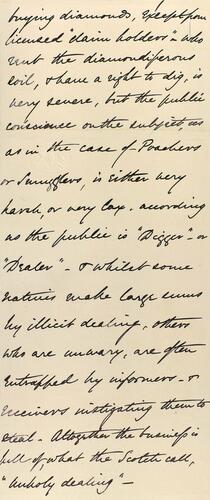 buying diamonds, except from
licensed "claim holders" - who
rent the diamondiferous
soil, & have a right to dig, is
very severe, but the public
conscience on the subject, is
as in the case of Poachers
or Smugglers, is either very
harsh, or very lax - according
as the public is "Digger" - or
"Dealer" - & whilst some
natives make large sums
by illicit dealing, others
who are unwary, are often
entrapped by informers - &
receivers instigating them to
steal - Altogether the business is
full of, what the Scotch call,
"Unholy dealing" -